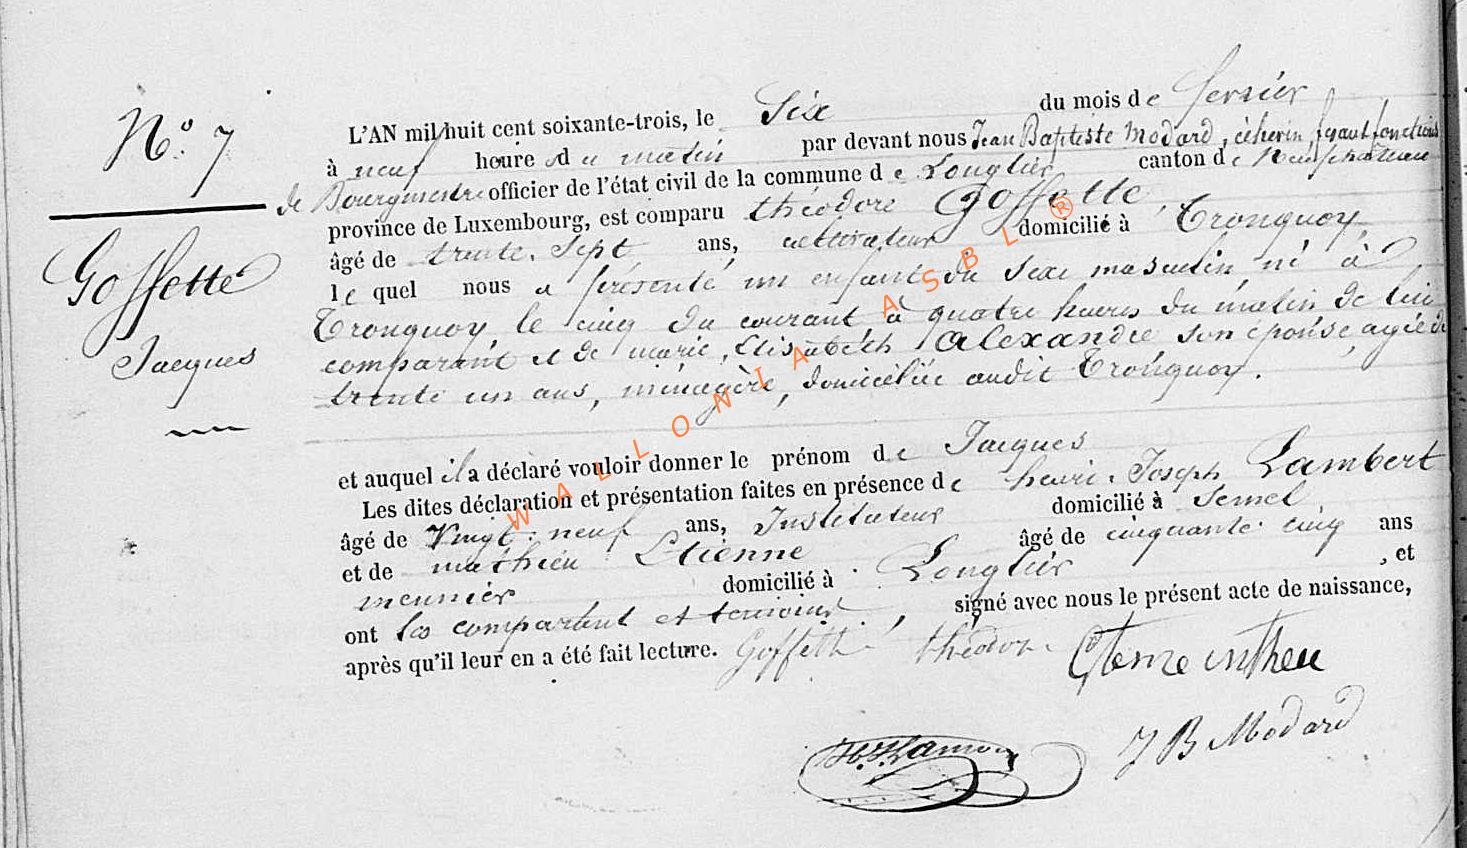 N.º 7
Goffette
Jacques
L'AN mil huit cent soixante-trois, le Six du mois de fevrier
à neuf heure du matin par devant nous Jean Baptiste Modard, échevin, fesant fonctions
de Bourgmestre officier de l'état civil de la commune de Longlier canton de Neufchateau
province de Luxembourg, est comparu théodore Goffette,
âgé de trente. Sept ans, cultivateur domicilié à Tronquoy
le quel nous a présenté un enfant du Sexe masculin, né à
Tronquoy le cinq du courant à quatre heures du matin de lui
comparant et de marie, Elisabéth Alexandre son épouse, agée de
trente un ans, ménagère, domiciliée audit Tronquoy.
et auquel il a déclaré vouloir donner le prénom de Jacques
Les dites déclaration et présentation faites en présence de henri. Joseph Lambert
âgé de Vingt. neuf ans, Instituteur domicilié à Semel
et de mathieu Etienne âgé de cinquante. cinq ans
meunier domicilié à Longlier, et
ont les comparant et temoins, signé avec nous le présent acte de naissance,
après qu'il leur en a été fait lecture. Goffette théodore
J B Modard
WALLONIA ASBL ®